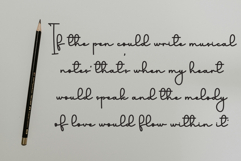 If the pen could write musical
notes' that's when my heart
would speak and the melody
of love would flow within it